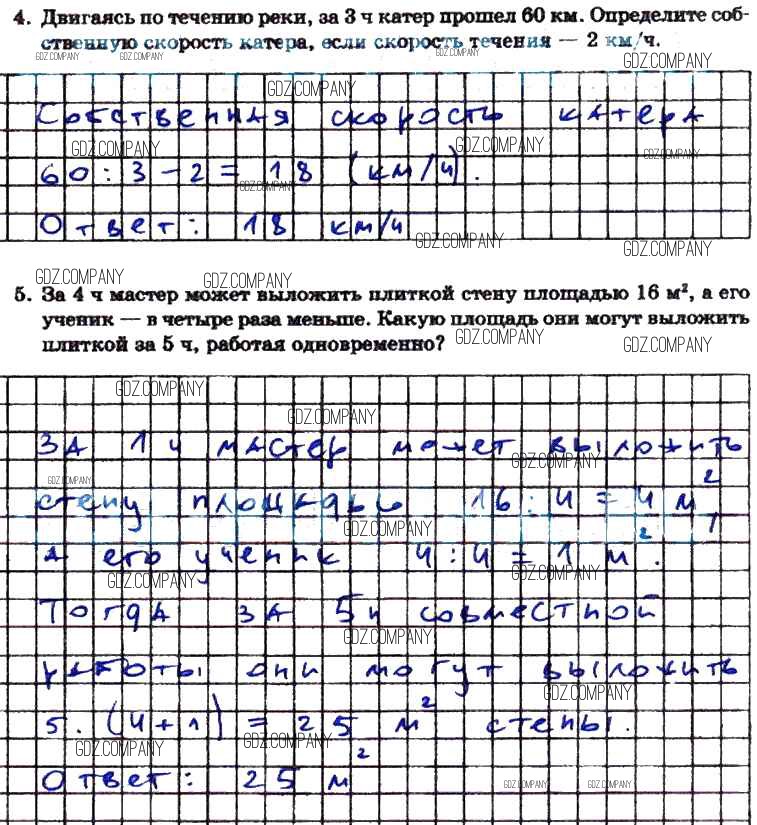 4. Двигаясь по течению реки, за 3 ч катер прошел 60 км. Определите соб-
ственную скорость катера, если скорость течения — 2 км/ч.
GDZ.COMPANY GDZ.COMPANY GDZ.COMPANY GDZ.COMPANY
GDZ.COMPANY
Собственная скорость катера
GDZ.COMPANY GDZ.COMPANY GDZ.COMPANY
60 : 3 - 2 = 18 (км/ч).
GDZ.COMPANY
Ответ: 18 км/ч
GDZ.COMPANY GDZ.COMPANY
GDZ.COMPANY GDZ.COMPANY
5. За 4 ч мастер может выложить плиткой стену площадью 16 м², а его
ученик — в четыре раза меньше. Какую площадь они могут выложить
плиткой за 5 ч, работая одновременно?
GDZ.COMPANY GDZ.COMPANY
GDZ.COMPANY
GDZ.COMPANY
За 1 ч мастер может выложить
GDZ.COMPANY GDZ.COMPANY
стену площадью 16 : 4 = 4 м²,
GDZ.COMPANY
а его ученик 4 : 4 = 1 м².
GDZ.COMPANY GDZ.COMPANY
Тогда за 5ч совместной
GDZ.COMPANY
работы они могут выложить
GDZ.COMPANY
5 · (4 + 1) = 25 м² стены.
GDZ.COMPANY GDZ.COMPANY
Ответ: 25 м²
GDZ.COMPANY GDZ.COMPANY